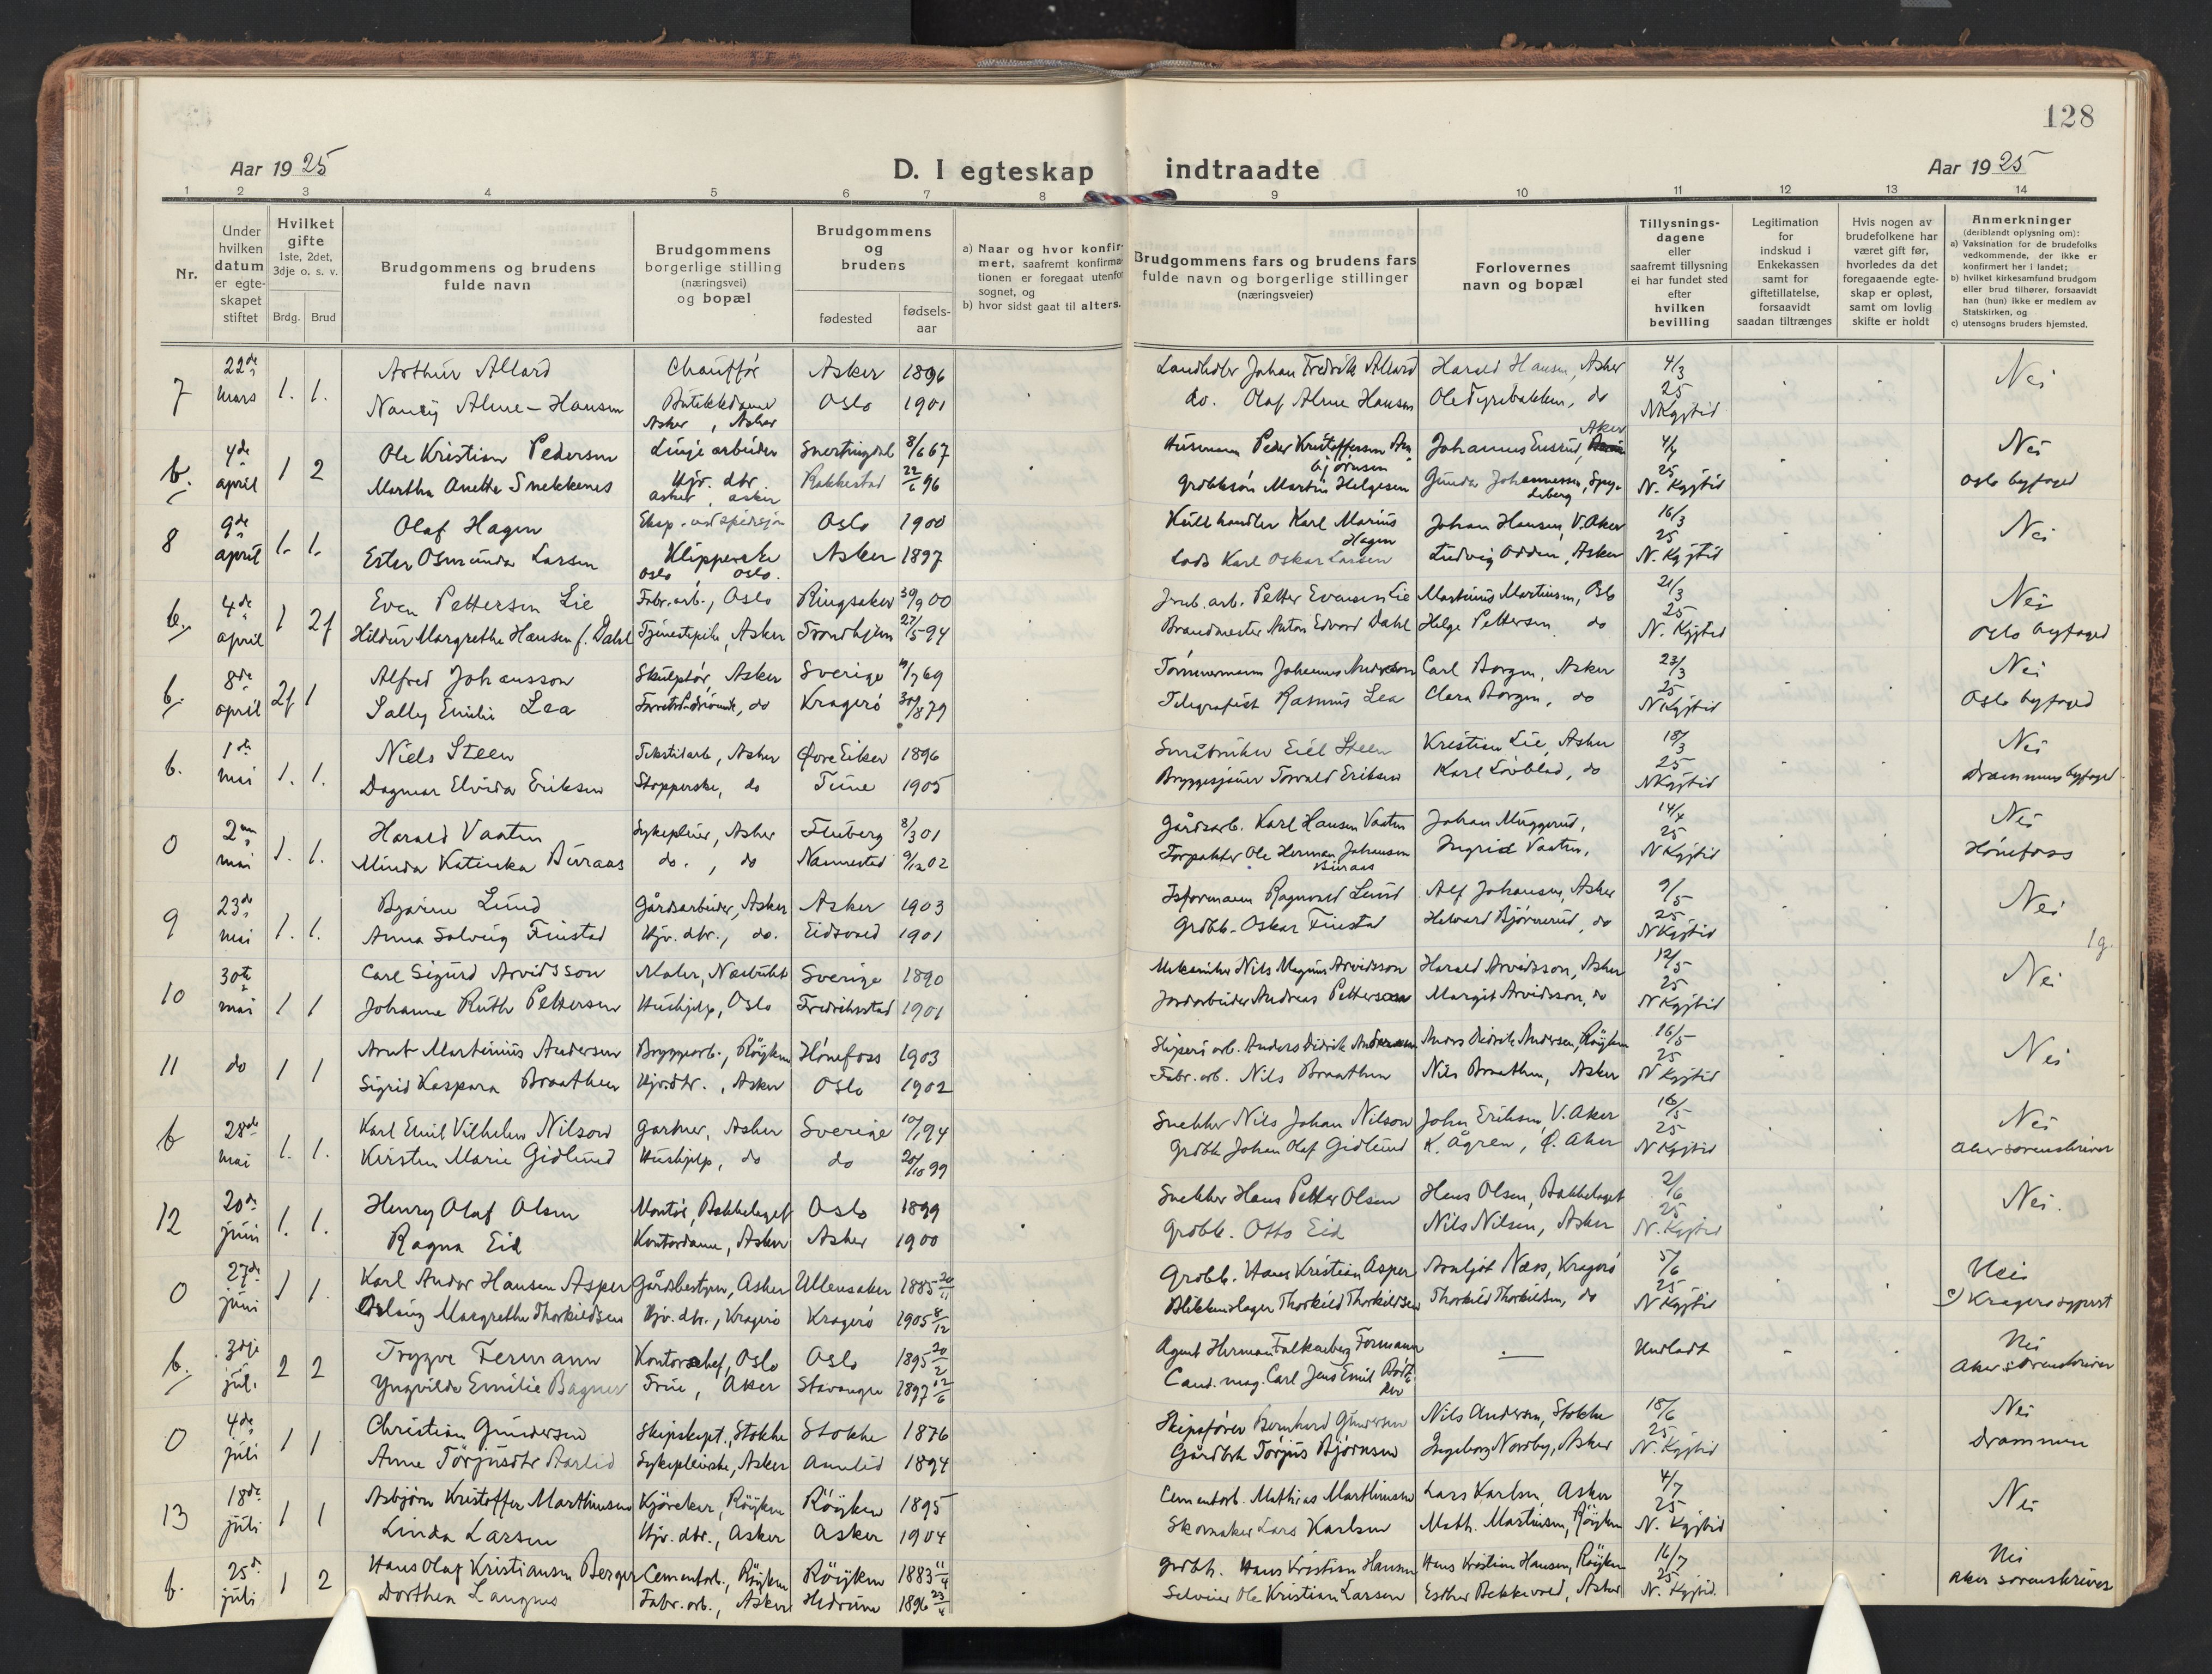 128
Aar 1925
D. I egteskap indtraadte
Aar 1925
1 2 3 4 5 6 7 8 9 10 11 12 13 14
Nr.
Under hvilken datum er egte-skapet stiftet
Hvilket gifte 1ste, 2det, 3dje o. s. v.
Brdg. Brud
Brudgommens og brudens fulde navn
Brudgommens borgerlige stilling (næringsvei) og bopæl
Brudgommens og brudens
fødested
fødsels-aar
a) Naar og hvor konfir-mert, saafremt konfirma-tionen er foregaat utenfor sognet, og
b) hvor sidst gaat til alters.
Brudgommens fars og brudens fars fulde navn og borgerlige stillinger (næringsveier)
Forlovernes navn og bopæl
Tillysnings-dagene eller saafremt tillysning ei har fundet sted efter hvilken bevilling
Legitimation for indskud i Enkekassen samt for giftetillatelse, forsaavidt saadan tiltrænges
Hvis nogen av brudefolkene har været gift før, hvorledes da det foregaaende egte-skap er opløst, samt om lovlig skifte er holdt
Anmerkninger (deriblandt oplysning om):
a) Vaksination for de brudefolks vedkommende, der ikke er konfirmert her i landet;
b) hvilket kirkesamfund brudgom eller brud tilhører, forsaavidt han (hun) ikke er medlem av Statskirken, og
c) utensogns bruders hjemsted.
7 22de mars 1. 1. Arthur Allard Chauffør Asker 1896 Landhdler Johan Fredrik Allard Harald Hansen, Asker 4/3 25 Nei
Nancy Alme-Hansen Butikkdame Oslo 1901 do. Olaf Alme Hansen Ole Fyribakken, do NKgjtid
Asker, Asker
b. 4de april 1 2 Ole Kristian Pedersen Linjearbeider Snertingdal 8/6 67 Husmann Peder Kristoffersen Johannes Ensrud, Aker 4/4 25 Nei
Martha Anette Snekkenes Hjv. dtr. Rakkestad 22/6 96 Grdbksøn Martin Helgesen Gunda Johannessen, Spydeberg N. Kgjtid Oslo byfoged
asker, asker
8 9de april 1. 1. Olaf Hagen Oslo 1900 Kullhandler Karl Marius Hagen Johan Hansen, V. Aker 16/3 25 Nei
Ester Osmunda Larsen Klipperske Asker 1897 Lods Karl Oskar Larsen Ludvig Odden, Asker N. Kgjtid
Oslo Oslo.
b. 4de april 1 2f Even Pettersen Lie Fabr.arb., Oslo Ringsaker 30/9 00 Petter Evensen Lie Martinius Martinsen, Oslo 21/3 25 Nei
Hildur Margrethe Hansen f. Dahl Tjenestepike, Asker Trondhjem 27/5-94 Brandmester Anton Edvard Dahl Helge Pettersen do N. Kgjtid Oslo byfoged
b. 8de april 2f 1 Alfred Johansson Skulptør, Asker Sverige 69 Tømmermann Johannes Andersson Carl Borgen, Asker 23/3 25 Nei
Sally Emilie Lea do Kragerø 30/8 79 Telegrafist Rasmus Lea Clara Borgen, do NKgjtid Oslo byfoged
b. 1ste mai 1. 1. Niels Steen Tekstilarb, Asker Øvre Eiker 1896 Småbruker Eiel Steen Kristian Lie, Asker 18/3 25 Nei
Dagmar Elvida Eriksen Stopperske, do Tune 1905 Bryggesjauer Torvald Eriksen Karl Lövblad, do NKgjtid Drammens byfoged
0 2den mai 1. 1. Harald Vaaten Sykepleier, Asker Fluberg 8/3 01 Gårdsarb. Karl Hansen Vaaten Johan Muggerud, 14/4 25 Nei
Minda Katinka Buraas do., do Nannestad 9/12 02 Forpakter Ole Herman Johansen Buraas Ingrid Vaaten, NKgjtid Hönefoss
9 23de mai 1. 1. Bjarne Lund Gårdsarbeider, Asker Asker 1903 Isformann Ragnvald Lund Alf Johansen, Asker 9/5 25 Nei
Anna Solveig Finstad Hjv. dtr., do. Eidsvold 1901 Grdbk. Oskar Finstad Halvard Bjørnerud, do NKgjtid
1g.
10 30te mai 1 1 Carl Sigurd Arvidsson Maler, Næsbukt Sverige 1890 Mekaniker Nils Magnus Arvidsson Harald Arvidsson, Asker 12/5 25 Nei
Johanne Ruth Pettersen Hushjelp, Oslo Fredrikstad 1901 Jordarbeider Andreas Petterson Margit Arvidsson, do NKgjtid
11 do 1 1 Arnt Martinius Andersen Bryggearb., Røyken Hönefoss 1903 Sliperiarb. Anders Didrik Andersen Anders Didrik Andersen, Røyken 16/5 25 Nei
Sigrid Kaspara Braathen Hjv.dtr., Asker Oslo 1902 Fabr. arb. Nils Braathen Nils Braathen, Asker NKgjtid
b 28de mai 1. 1. Karl Emil Vilhelm Nilson Gartner, Asker Sverige 94 Snekker Nils Johan Nilson John Eriksen, V. Aker 16/5 25 Nei
Kirsten Marie Gidlund Hushjelp, do do 20/10 99 Grdbk Johan Olaf Gidlund K. Ågren, Ø. Aker NKgjtid Aker sorenskriver
12 20de juni 1. 1. Henry Olaf Olsen Montør, Bekkelaget Oslo 1899 Snekker Hans Petter Olsen Hans Olsen, Bekkelaget 2/6 25 Nei.
Ragna Eid Kontordame, Asker Asker 1900 Grdbk. Otto Eid Nils Nilsen, Asker N. Kgjtid
0 27de juni 1 1. Karl Andor Hansen Asper Gårdsbestyrer, Asker Ullensaker 1885 20/11 Grdbk. Hans Kristian Asper Arnljot Næss, Kragerø 5/6 25 Nei
Aslaug Margrethe Thorkildsen Hjv. dtr., Kragerø Kragerø 1905 8/12 Blikkenslager Thorkild Thorkildsen Thorkild Thorkildsen, do NKgjtid c) Kragerø
b. 3dje juli 2 2 Trygve Fermann Kontorchef, Oslo Oslo 1895 20/2 Agent Herman Falkenberg Formann — Undladt - Nei
Yngvilde Emilie Bagner Frue, Aker Stavanger 1897 12/6 Cand. mag. Carl Jens Emil Aker sorenskriver
0 4de juli 1 1 Christian Gundersen Skipskapt., Stokke Stokke 1876 Skipsfører Bernhard Gundersen Nils Andersen, Stokke 18/6 25 Nei
Anne Torjusdtr Aarlid Sykepleierske, Asker Aamlid 1894 Gårdbrk Torjus Bjørnsen Ingeborg Nordby, Asker N. Kgjtid Drammen
13 18de juli 1 1 Asbjørn Kristoffer Marthinsen Kjørekar, Røyken Røyken 1895 Cementarb. Mathias Marthinsen Lars Karlsen, Asker 4/7 25 Nei
Linda Larsen Hjv. dtr., Asker Asker 1904 Skomaker Lars Karlsen Math. Martinsen, Røyken N. Kgjtid
b. 25de juli 1 2 Hans Olaf Kristiansen Berger Cementarb., Røyken Røyken 1883 11/4 Grdbk. Hans Kristian Hansen Hans Kristian Hansen, Røyken 16/7 25 Nei
Dorthea Langnes Fabr. arb., Asker Hedrum 1896 23/4 Selveier Ole Kristian Larsen Esther Bekkevold, Asker N. Kgjtid. Aker sorenskriver